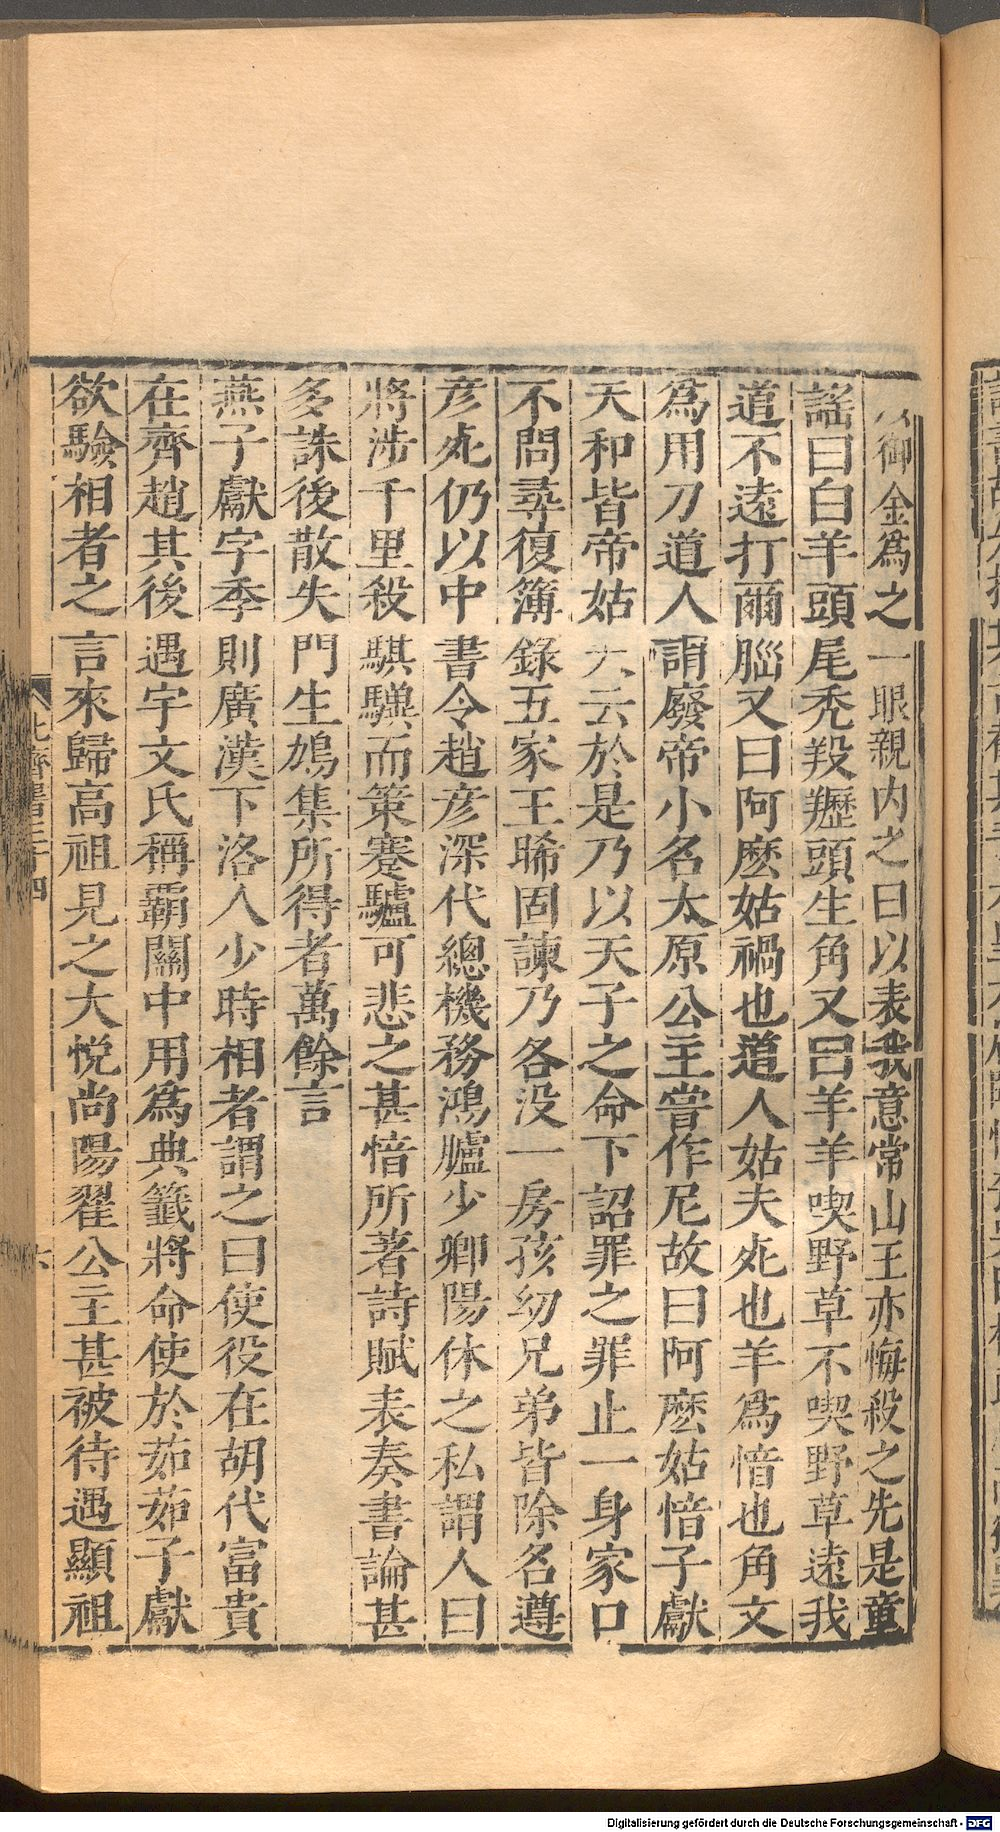 以御金爲之一眼親内之曰以表我意常山王亦悔殺之先是童
謡曰白羊頭尾禿羖䍽頭生角又曰羊羊喫野草不喫野草遠我
道不遠打爾腦又曰阿麽姑禍也道人姑夫死也羊爲愔也角文
爲用刀道人謂廢帝小名太原公主嘗作尼故曰阿麽姑愔子獻
天和皆帝姑夫云於是乃以天子之命下詔罪之罪止一身家口
不問尋復簿錄五家王晞固諫乃各没一房孩幼兄弟皆除名遵
彦死仍以中書令趙彦深代總機務鴻臚少卿陽休之私謂人曰
將涉千里殺騏驥而策蹇驢可悲之甚愔所著詩賦表奏書論甚
多誅後散失門生鳩集所得者萬餘言
燕子獻字季則廣漢下洛人少時相者謂之曰使役在胡代富貴
在齊趙其後遇宇文氏稱霸關中用爲典籖將命使於茹茹子獻
欲驗相者之言來歸高祖見之大悦尚陽翟公主甚被待遇顯祖
北齊書三十四
六
Digitalisierung gefördert durch die Deutsche Forschungsgemeinschaft - DFG